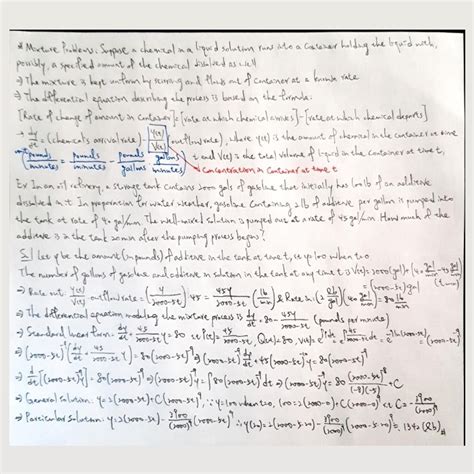 * Mixture Problems: Suppose a chemical in a liquid solution runs into a Container holding the liquid with,
possibly, a specified amount of the chemical dissolved as well
⇒ The mixture is kept uniform by stirring and flows out of Container at a known rate
⇒ The differential equation describing the process is based on the formula:
[Rate of change of amount in Container] = [rate at which chemical arrives] - [rate at which chemical departs]
→ dy/dt = (chemical's arrival rate) - y(t)/V(t) (outflow rate), where y(t) is the amount of chemical in the container at time
t and V(t) is the total volume of liquid in the Container at time t,
(pounds/minutes) = pounds/minutes - pounds/gallons · gallons/minutes
Concentration in Container at time t
Ex In an oil refinery, a storage tank contains 2000 gals of gasoline that initially has 100 lb of an additive
dissolved in it. In preparation for winter weather, gasoline Containing 2 lb of additive per gallon is pumped into
the tank at rate of 40 gal/min. The well-mixed solution is pumped out at a rate of 45 gal/min. How much of the
additive is in the tank 20 min after the pumping process begins?
Sol Let y be the amount (in pounds) of additive in the tank at time t, ie y=100 when t=0
The number of gallons of gasoline and additive in solution in the tank at any time t is V(t) = 2000 (gal) + (40 gal/min - 45 gal/min)(t min)
⇒ Rate out: y(t)/V(t) · outflow rate = (y/2000-5t) 45 = 45y/2000-5t (lb/min) & Rate in = (2 lb/gal)(40 gal/min) = 80 lb/min
⇒ The differential equation modeling the mixture process is dy/dt = 80 - 45y/2000-5t (pounds per minute)
⇒ Standard linear form: dy/dt + 45/2000-5t y = 80 ie P(t) = 45/2000-5t, Q(t) = 80,
⇒ General solution: y = 2(2000-5t) + C(2000-5t)⁹, ∵ y=100 when t=0, 100 = 2(2000-0) + C(2000-0)⁹ ⇔ C = -3900/(2000)⁹
⇒ Particular solution: y = 2(2000-5t) - 3900/(2000)⁹ (2000-5t)⁹ ∴ y(20) = 2(2000-5·20) - 3900/(2000)⁹ (2000-5·20)⁹ = 1342 (lb)